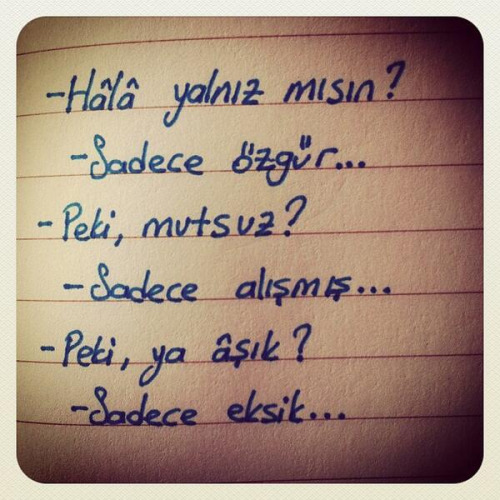 -Hâlâ yalnız mısın?
-Sadece özgür...
-Peki, mutsuz?
-Sadece alışmış...
-Peki, ya âşık?
-Sadece eksik...